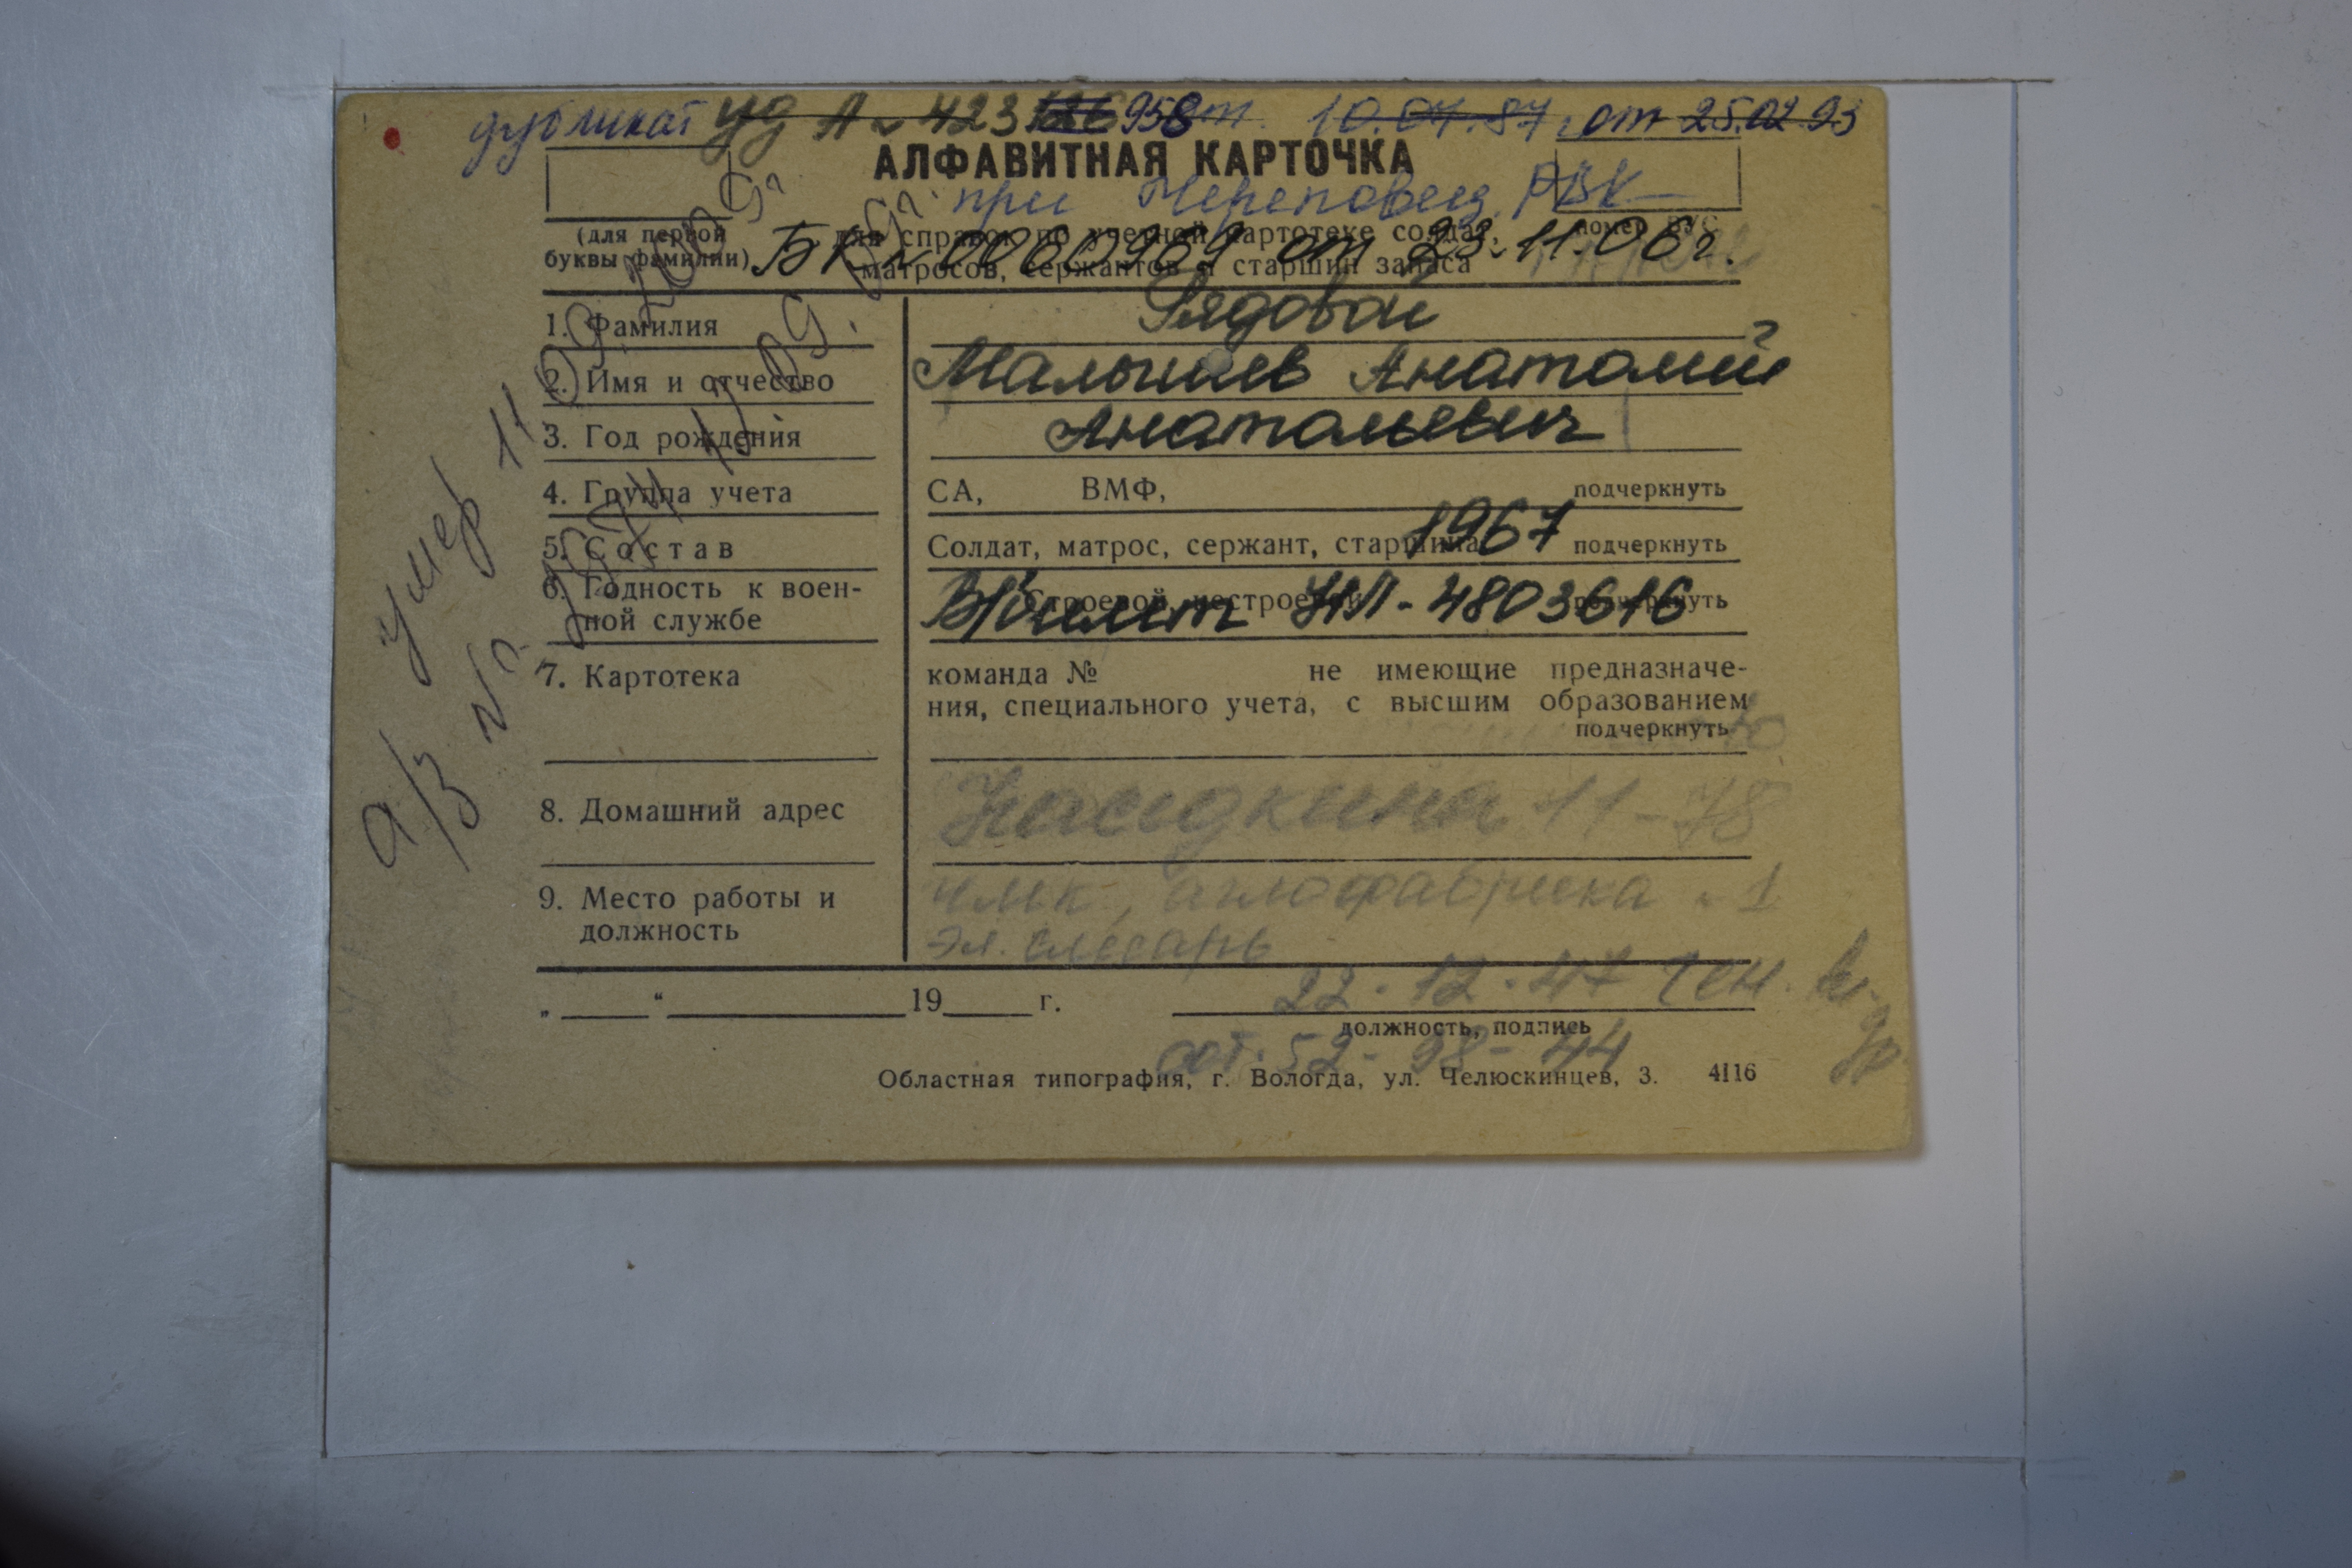 дубликат уд А № 423 958 от 10.04.87 г от 25.02.93
АЛФАВИТНАЯ КАРТОЧКА
при Череповец. РВК
(для первой буквы фамилии)
для справок по учетной картотеке солдат,
матросов, сержантов и старшин запаса
номер ВУС
БК № 0060969 от 23.11.06г.
Рядовой
1. Фамилия
2. Имя и отчество
Малышев Анатолий
3. Год рождения
Анатольевич
4. Группа учета
СА, ВМФ, подчеркнуть
5. Состав
Солдат, матрос, сержант, старшина подчеркнуть
1967
6. Годность к воен-
ной службе
Строевой, нестроевой подчеркнуть
В/билет НЛ - 4803616
7. Картотека
команда № не имеющие предназначе-
ния, специального учета, с высшим образованием
подчеркнуть
8. Домашний адрес
Наседкина 11-78
9. Место работы и
должность
ЧМК, аглофабрика № 1
эл. слесарь
„ “ 19 г.
22-12-47
должность, подпись
сот. 52-98-44
Областная типография, г. Вологда, ул. Челюскинцев, 3. 4116
умер 11.09
а/з №